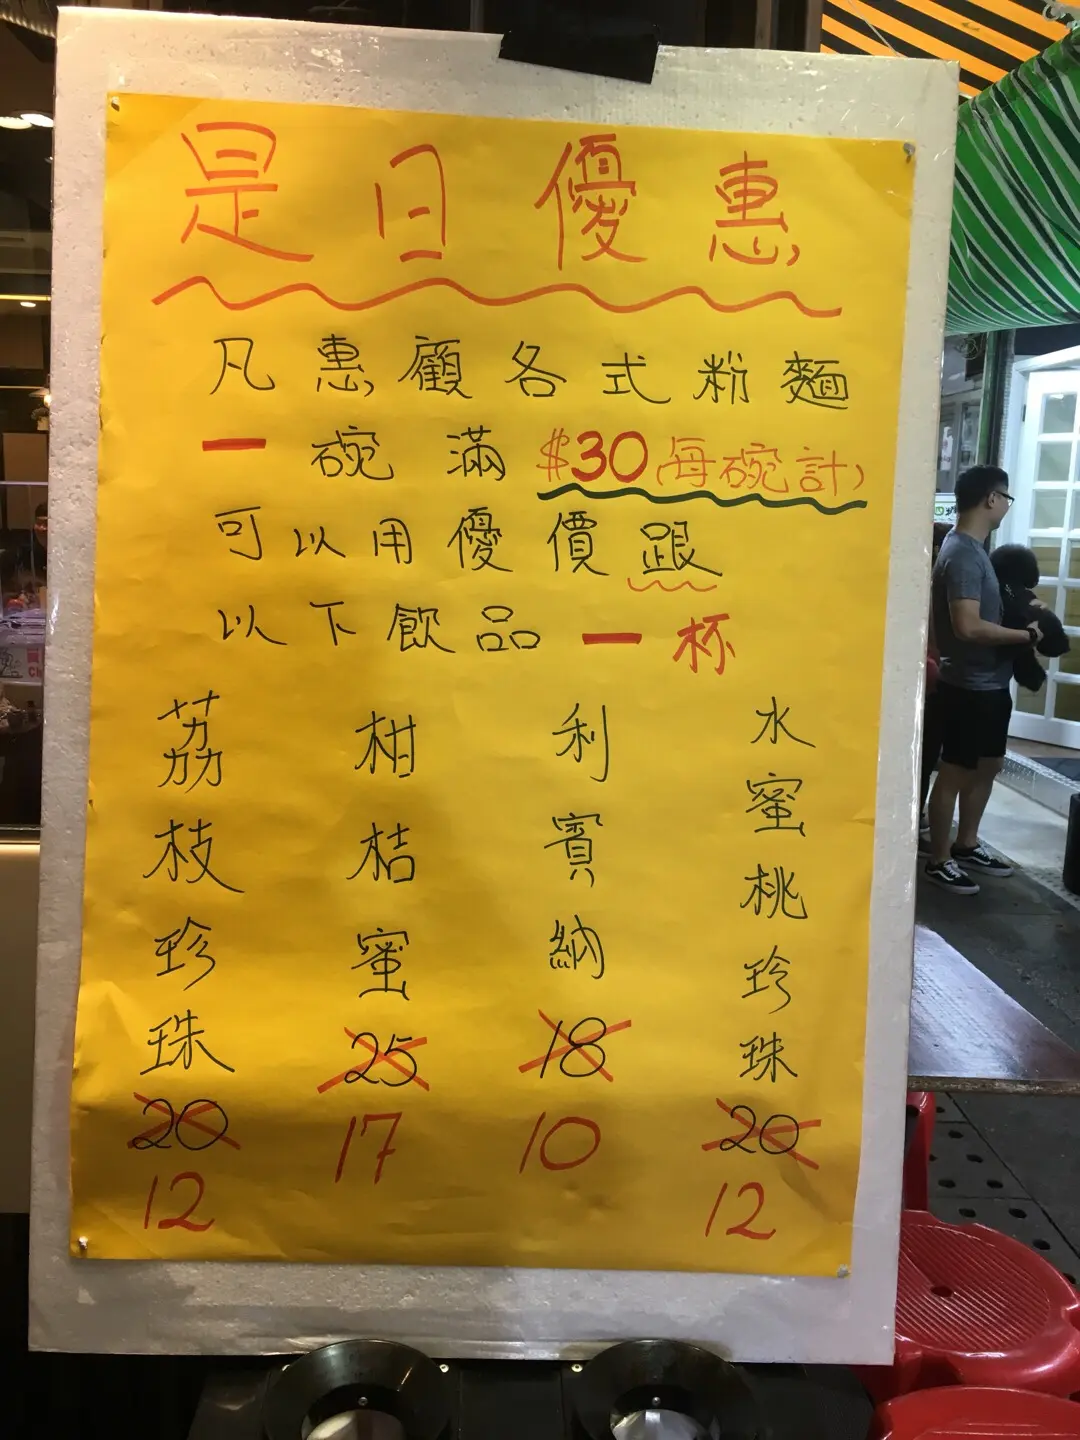 是日優惠
凡惠顧各式粉麵
一碗滿$30每碗計
可以用優價跟
以下飲品一杯
荔枝珍珠
20
12
柑桔蜜
25
17
利賓納
18
10
水蜜桃珍珠
20
12